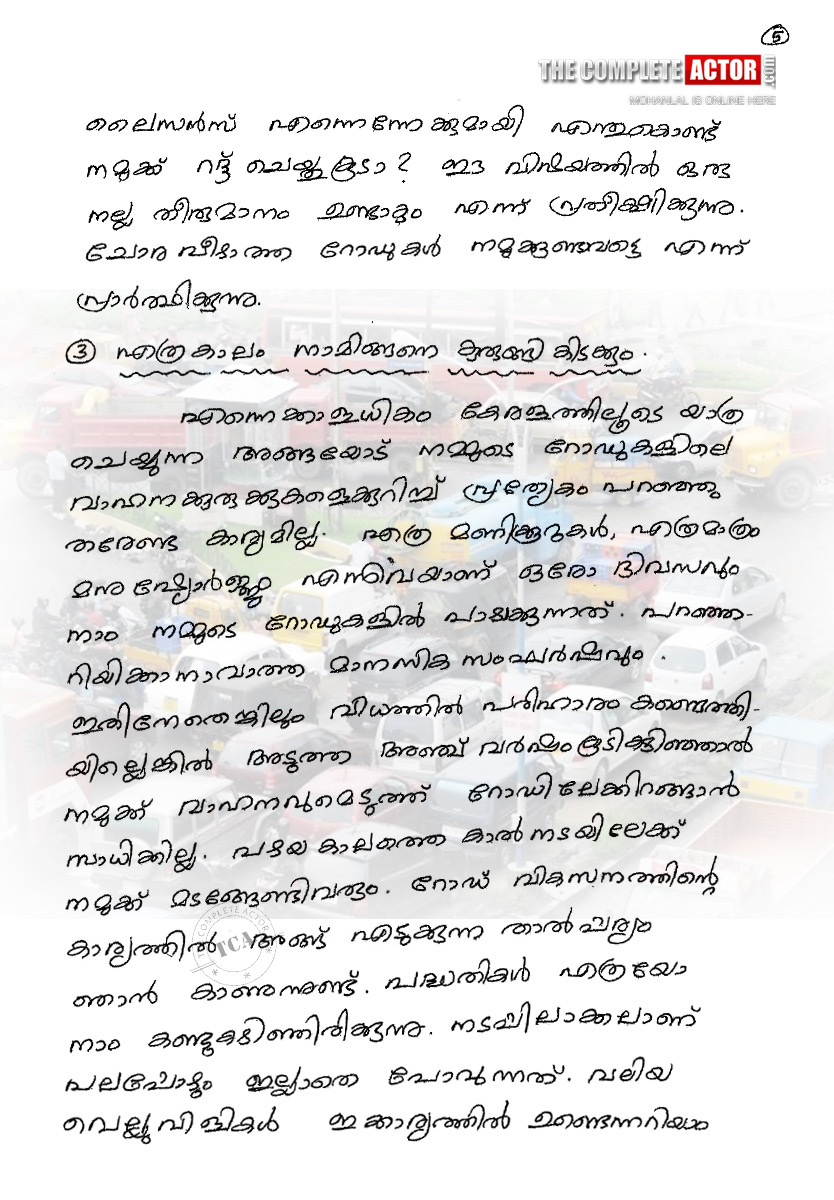 5
THE COMPLETE ACTOR .com
MOHANLAL IS ONLINE HERE
ലൈസൻസ് എന്നെന്നേക്കുമായി എന്തുകൊണ്ട്
നമുക്ക് റദ്ദ് ചെയ്തുകൂടാ? ഈ വിഷയത്തിൽ ഒരു
നല്ല തീരുമാനം ഉണ്ടാകും എന്ന് പ്രതീക്ഷിക്കുന്നു.
ചോര വീഴാത്ത റോഡുകൾ നമുക്കുണ്ടാവട്ടെ എന്ന്
പ്രാർത്ഥിക്കുന്നു.
③ എത്ര കാലം നാമിങ്ങനെ കുരുങ്ങി കിടക്കും.
എന്നെക്കാളധികം കേരളത്തിലൂടെ യാത്ര
ചെയ്യുന്ന അങ്ങയോട് നമ്മുടെ റോഡുകളിലെ
വാഹനക്കുരുക്കുകളെക്കുറിച്ച് പ്രത്യേകം പറഞ്ഞു
തരേണ്ട കാര്യമില്ല. എത്ര മണിക്കൂറുകൾ, എത്രമാത്രം
മനുഷ്യോർജ്ജം എന്നിവയാണ് ഒരോ ദിവസവും
നാം നമ്മുടെ റോഡുകളിൽ പാഴാക്കുന്നത്. പറഞ്ഞ-
റിയിക്കാനാവാത്ത മാനസിക സംഘർഷവും.
ഇതിനേതെങ്കിലും വിധത്തിൽ പരിഹാരം കണ്ടെത്തി-
യില്ലെങ്കിൽ അടുത്ത അഞ്ച് വർഷം കൂടികഴിഞ്ഞാൽ
നമുക്ക് വാഹനവുമെടുത്ത് റോഡിലേക്കിറങ്ങാൻ
സാധിക്കില്ല. പഴയ കാലത്തെ കാൽ നടയിലേക്ക്
നമുക്ക് മടങ്ങേണ്ടിവരും. റോഡ് വികസനത്തിന്റെ
കാര്യത്തിൽ അങ്ങ് എടുക്കുന്ന താൽപര്യം
ഞാൻ കാണുന്നുണ്ട്. പദ്ധതികൾ എത്രയോ
നാം കണ്ടുകഴിഞ്ഞിരിക്കുന്നു. നടപ്പിലാക്കലാണ്
പലപ്പോഴും ഇല്ലാതെ പോവുന്നത്. വലിയ
വെല്ലുവിളികൾ ഇക്കാര്യത്തിൽ ഉണ്ടെന്നറിയാം
THE COMPLETE ACTOR
TCA